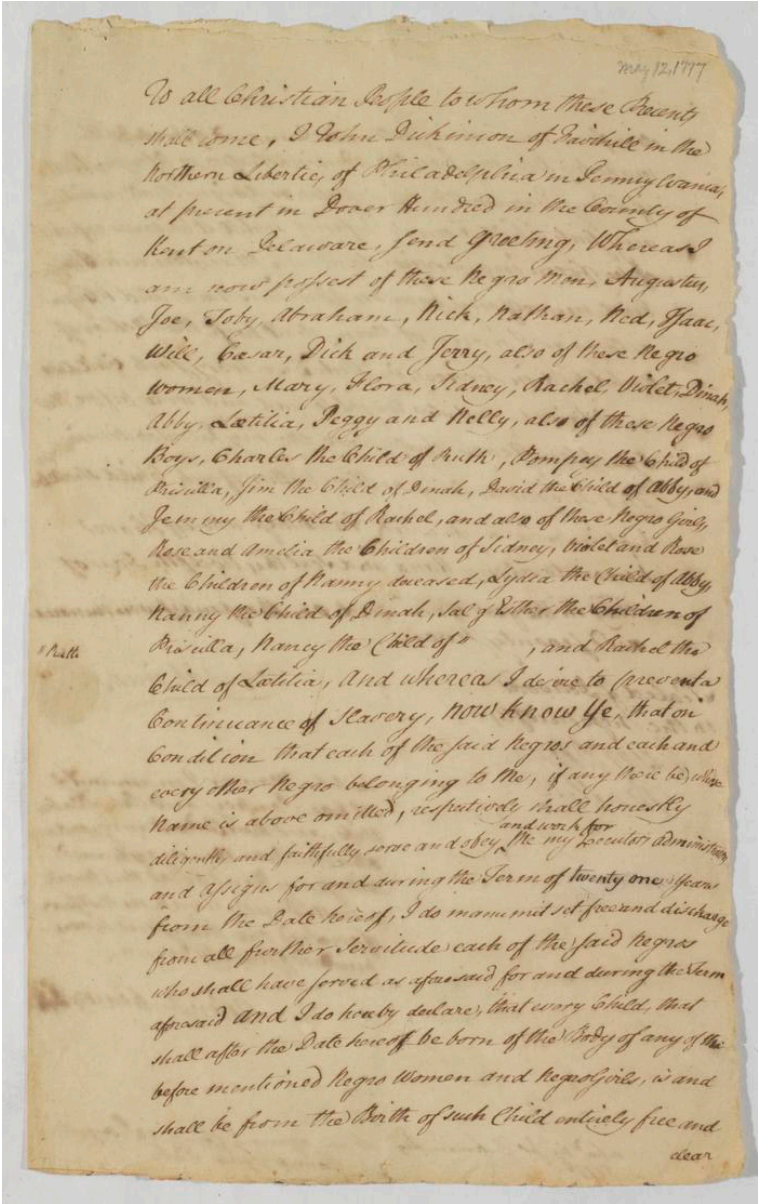 May 12, 1777
To all Christian People to whom these Presents
shall come, I John Dickinson of Fairhill in the
Northern Liberties of Philadelphia in Pennsylvania,
at present in Dover Hundred in the County of
Kent on Delaware, send Greeting, Whereas I
am now possest of these Negro Men, Augustus,
Joe, Toby, Abraham, Nick, Nathan, Ned, Isaac,
Will, Cæsar, Dick and Jerry, also of these Negro
Women, Mary, Flora, Sidney, Rachel, Violet, Dinah,
Abby, Lætitia, Peggy and Nelly, also of these Negro
Boys, Charles the Child of Ruth, Pompey the Child of
Priscilla, Jim the Child of Dinah, David the Child of Abby, and
Jemmy the Child of Rachel, and also of these Negro Girls,
Rose and Amelia the Children of Sidney, Violet and Rose
the Children of Nanny deceased, Lydia the Child of Abby,
Nanny the Child of Dinah, Sal & Esther the Children of
" Ruth Priscilla, Nancy the Child of " , and Rachel the
Child of Lætitia, And whereas I desire to prevent a
Continuance of Slavery, Now know Ye, that on
Condition that each of the said Negros and each and
every other Negro belonging to Me, if any there be, whose
Name is above omitted, respectively shall honestly
and work for
diligently and faithfully serve and obey Me my Executors administrators
and Assigns for and during the Term of twenty one Years
from the Date hereof, I do manumit set free and discharge
from all further Servitude each of the said Negros
who shall have served as aforesaid for and during the Term
aforesaid And I do hereby declare, that every Child, that
shall after the Date hereof be born of the Body of any of the
before mentioned Negro Women and Negro Girls, is and
shall be from the Birth of such Child entirely free and
clear